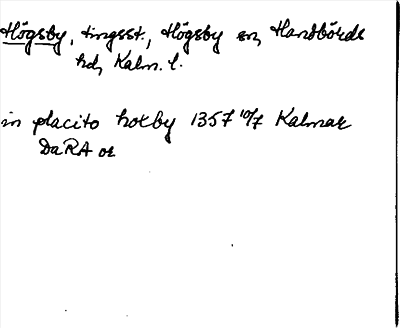 Högsby, tingsst., Högsby sn, Handbörds
hd, Kalm. l.
in placito hoxby 1357 10/7 Kalmar
DaRA or